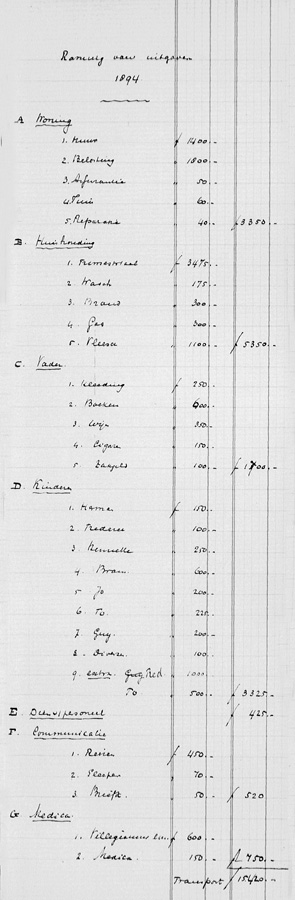 Raming van uitgaven
1894
A Woning
1. Huur f 1400.-
2. Belasting " 1800.-
3. Assurantie " 50.-
4. Tuin " 60.-
5. Reparatie " 40.- f 3350.-
B. Huishouding
1. f 3475.-
2. Wasch " 175.-
3. Brand " 300.-
4. Gas " 300.-
5. Vleesch " 1100.- f 5350.-
C. Vader.
1. Kleeding f 250.-
2. Boeken " 600.-
3. Wijn " 350.-
4. Cigaren " 150.-
5. " 100.- f 1700.-
D. Kinderen
1. f 150.-
2. " 100.-
3. Henriette " 250.-
4. Bram. " 600.-
5. Jo " 200.-
6. To. " 225.-
7. Guy. " 200.-
8. Diversen. " 100.-
9. extra. Guy " 1000.-
To " 500.- f 3325.-
E. Dienstpersoneel f 425.-
F. Communicatie
1. Reizen f 450.-
2. " 70.-
3. " 50.- f 520
G. Medica.
1. f 600.-
2. Medica. " 150.- f 750.-
Transport f 15420.-